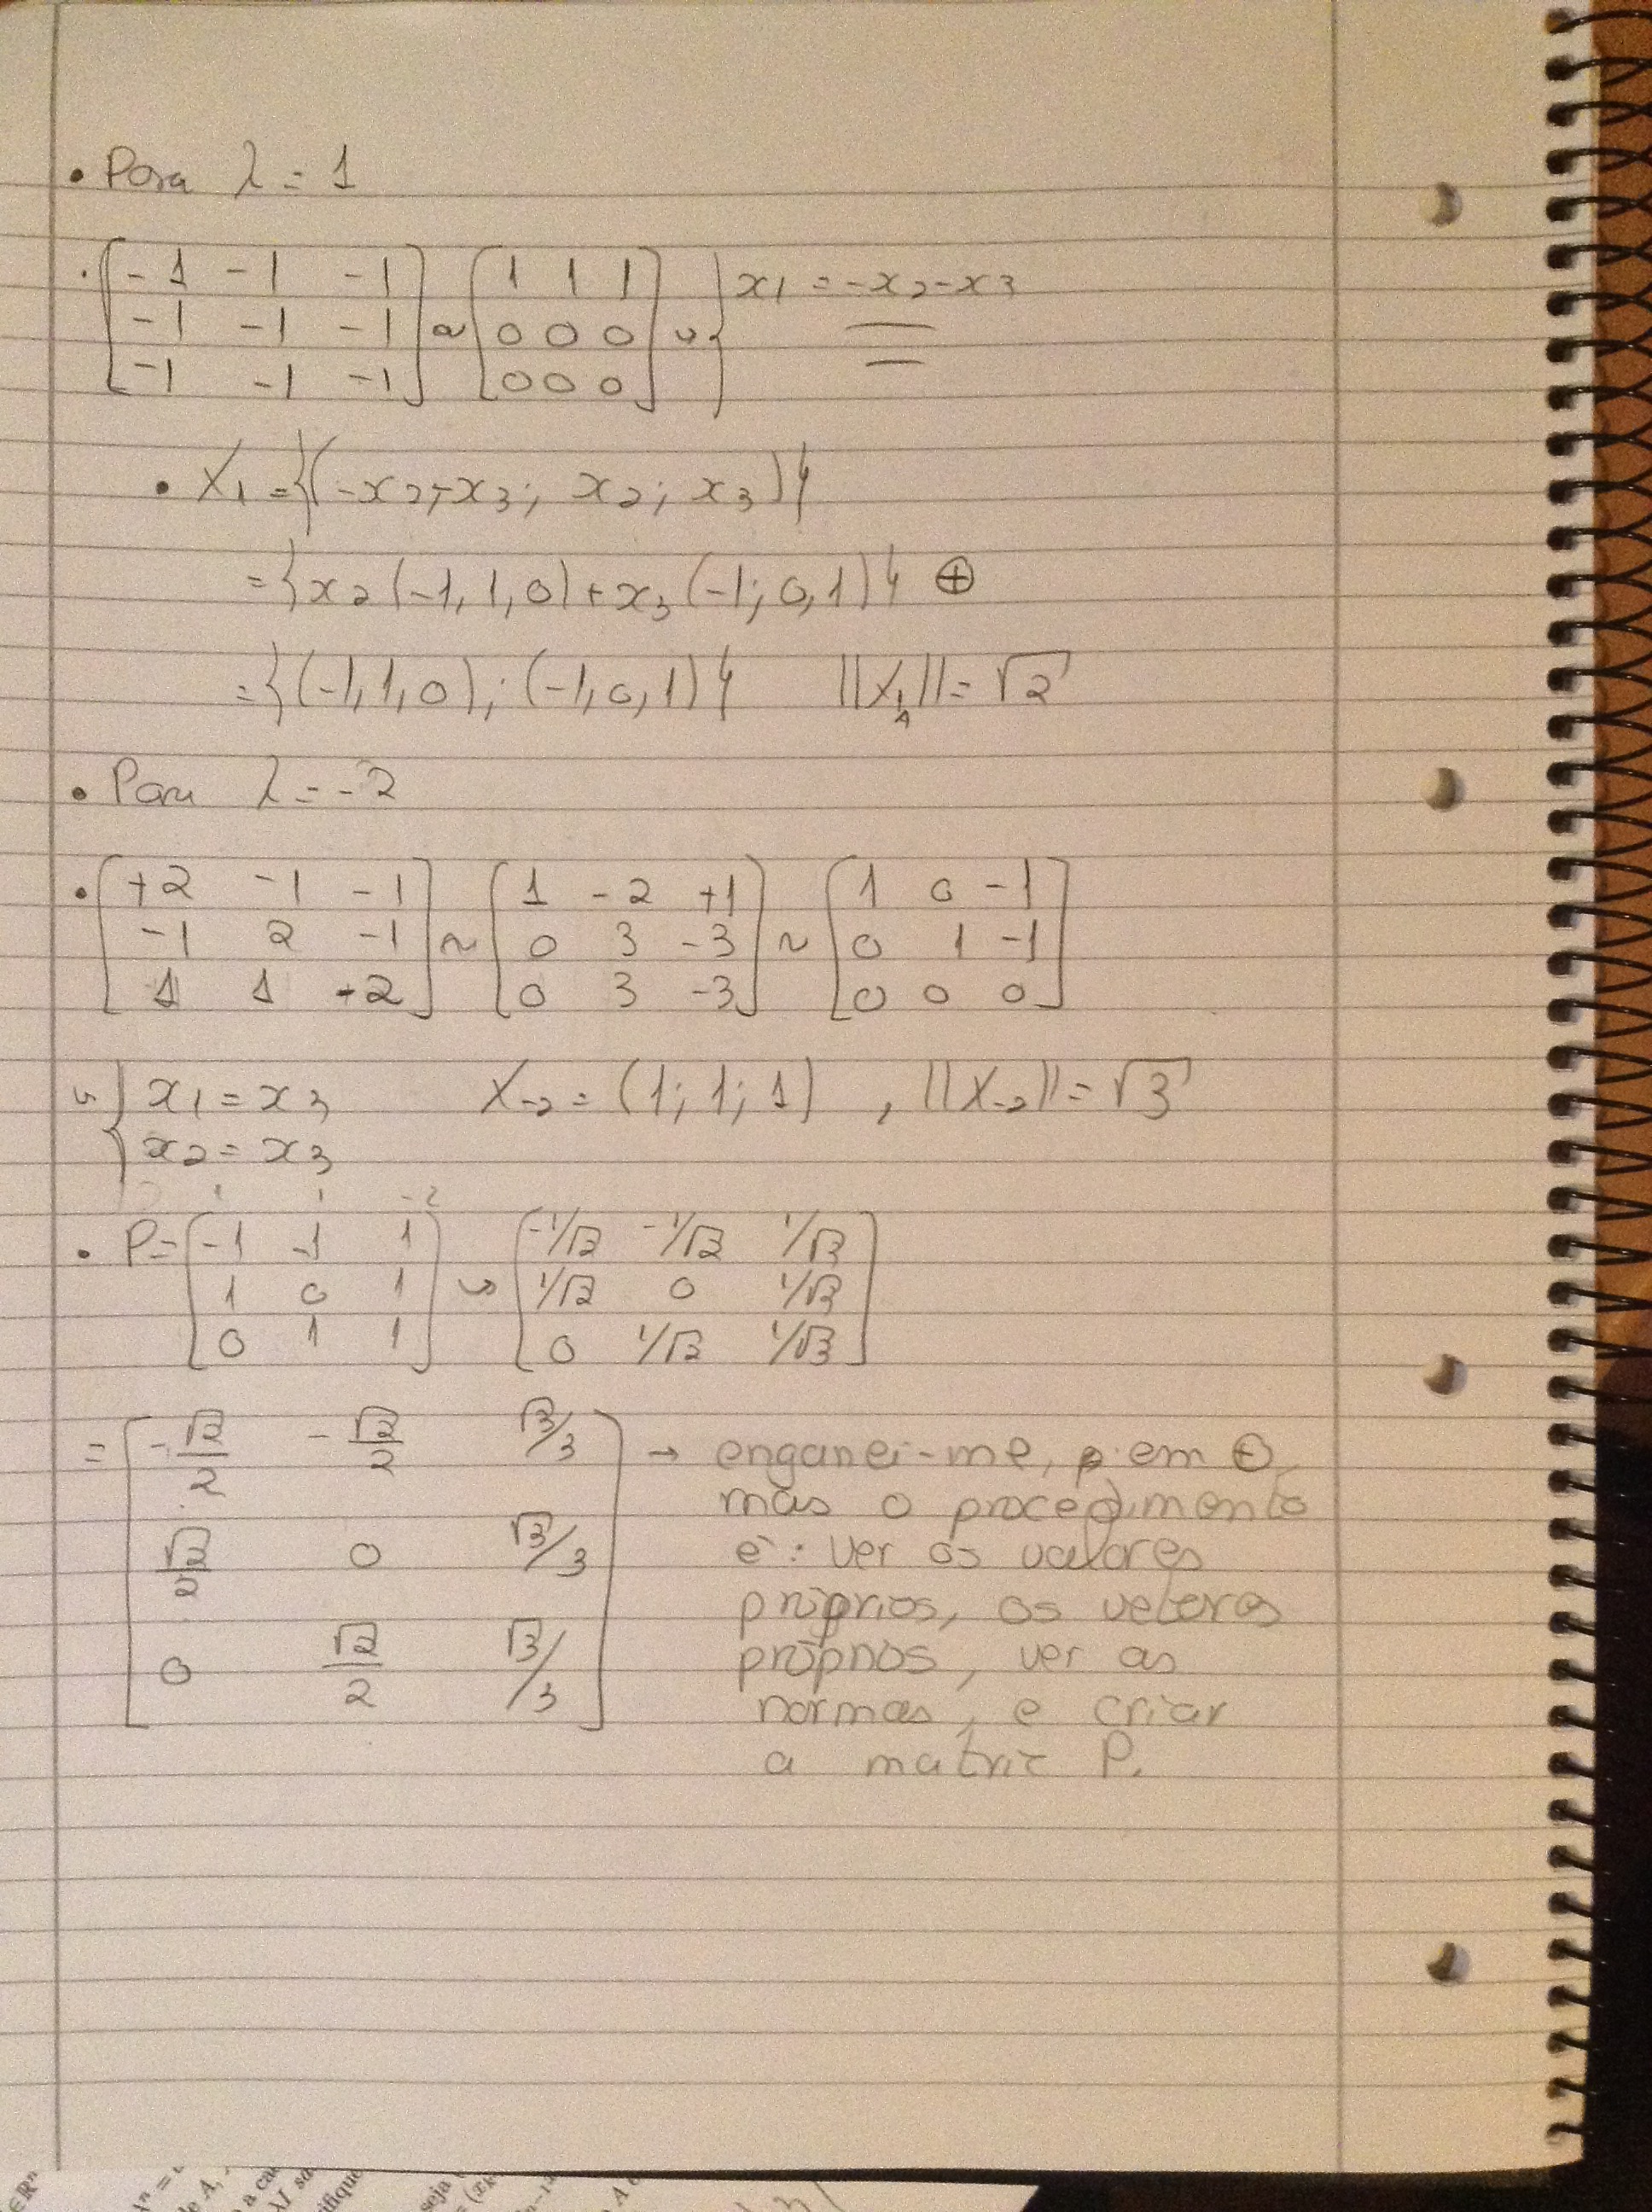 • Para λ = 1
[-1 -1 -1
-1 -1 -1
-1 -1 -1] ~ [1 1 1
0 0 0
0 0 0] ↳ { x1 = -x2-x3
• X1 = {(-x2-x3; x2; x3)}
= {x2(-1,1,0)+x3(-1;0,1)} ⊕
= {(-1,1,0);(-1,0,1)} ||X1|| = √2
• Para λ = -2
• [+2 -1 -1
-1 2 -1
1 1 -2] ~ [1 -2 +1
0 3 -3
0 3 -3] ~ [1 0 -1
0 1 -1
0 0 0]
↳ { x1 = x3
x2 = x3 X-2 = (1;1;1) , ||X-2|| = √3
1 1 -2
• P = [-1 -1 1
1 0 1
0 1 1] ↳ [-1/√2 -1/√2 1/√3
1/√2 0 1/√3
0 1/√2 1/√3]
= [-√2/2 -√2/2 √3/3
√2/2 0 √3/3
0 √2/2 √3/3]
→ enganei-me, em ⊕,
mas o procedimento
é: ver os valores
próprios, os vetores
próprios, ver as
normas, e criar
a matriz P.